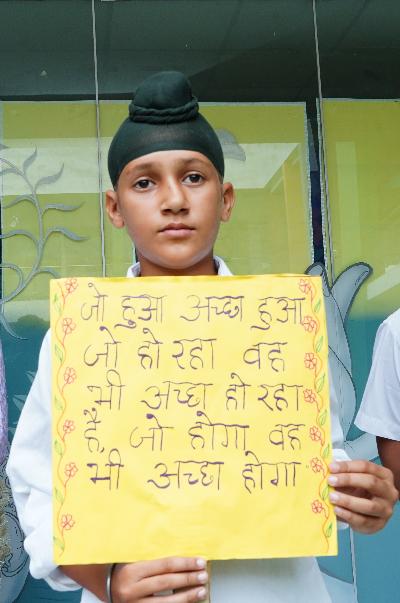 जो हुआ अच्छा हुआ
जो हो रहा वह
भी अच्छा हो रहा
है, जो होगा वह
भी अच्छा होगा